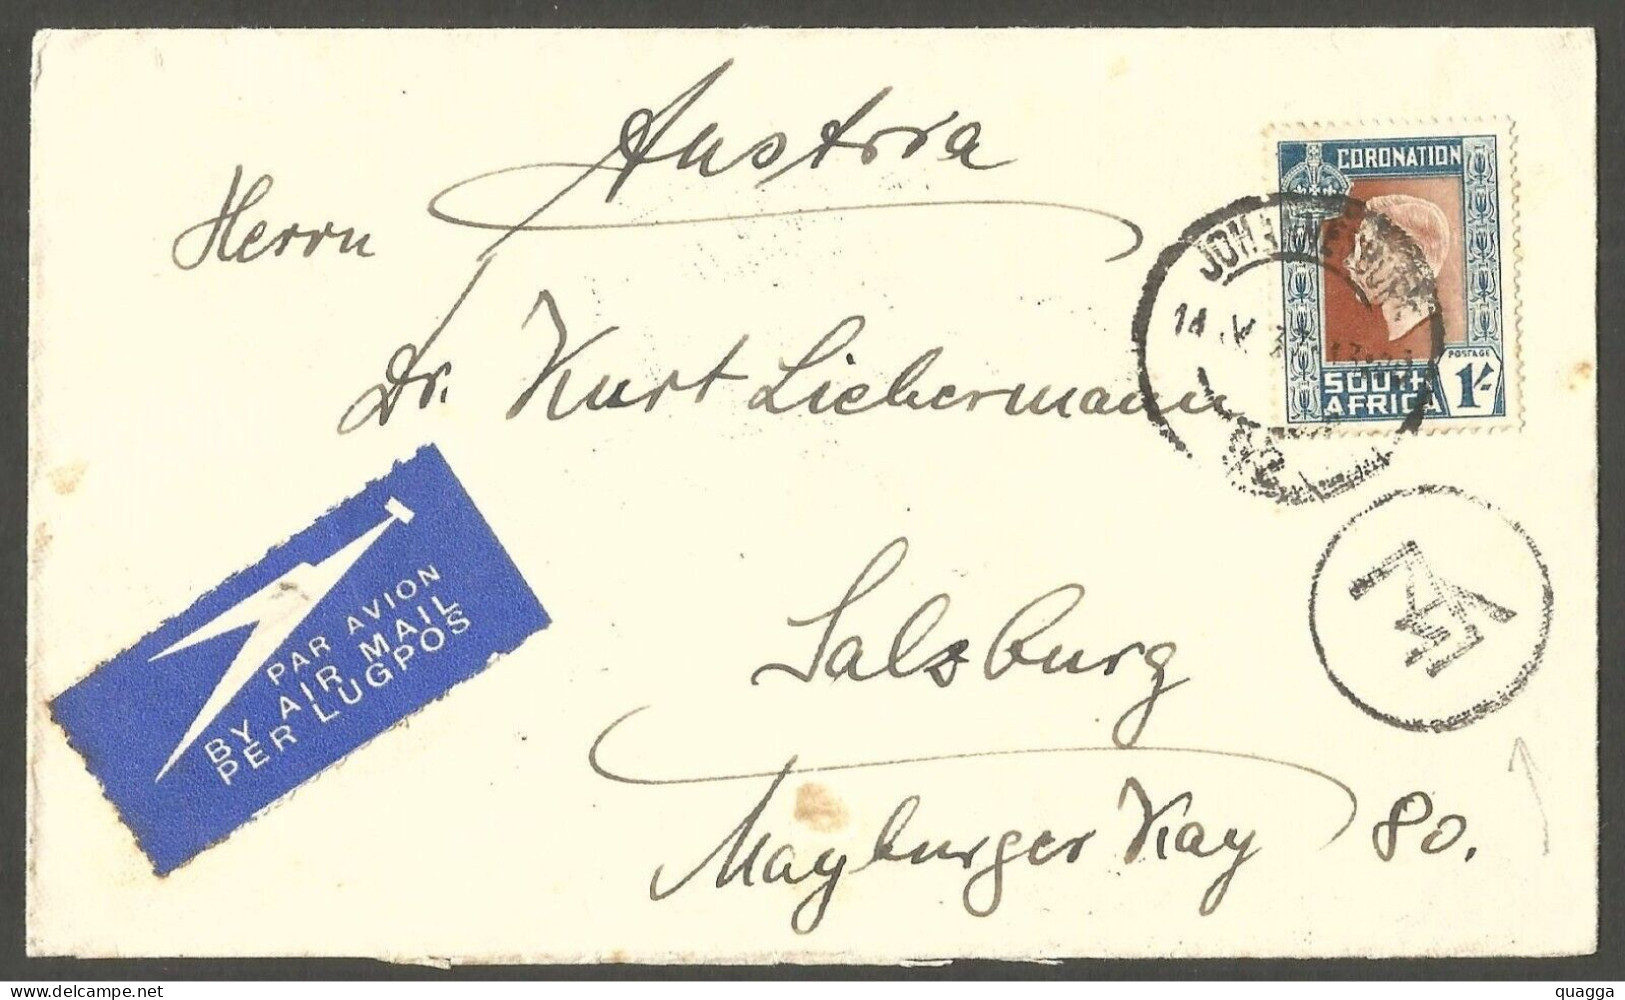 Austria
Herrn
Dr. Kurt Liebermann
Salzburg
Mayburger Kay 80.
CORONATION
POSTAGE
SOUTH
AFRICA 1/-
JOHANNESBURG
14 .V 37
PAR AVION
BY AIR MAIL
PER LUGPOS
quagga